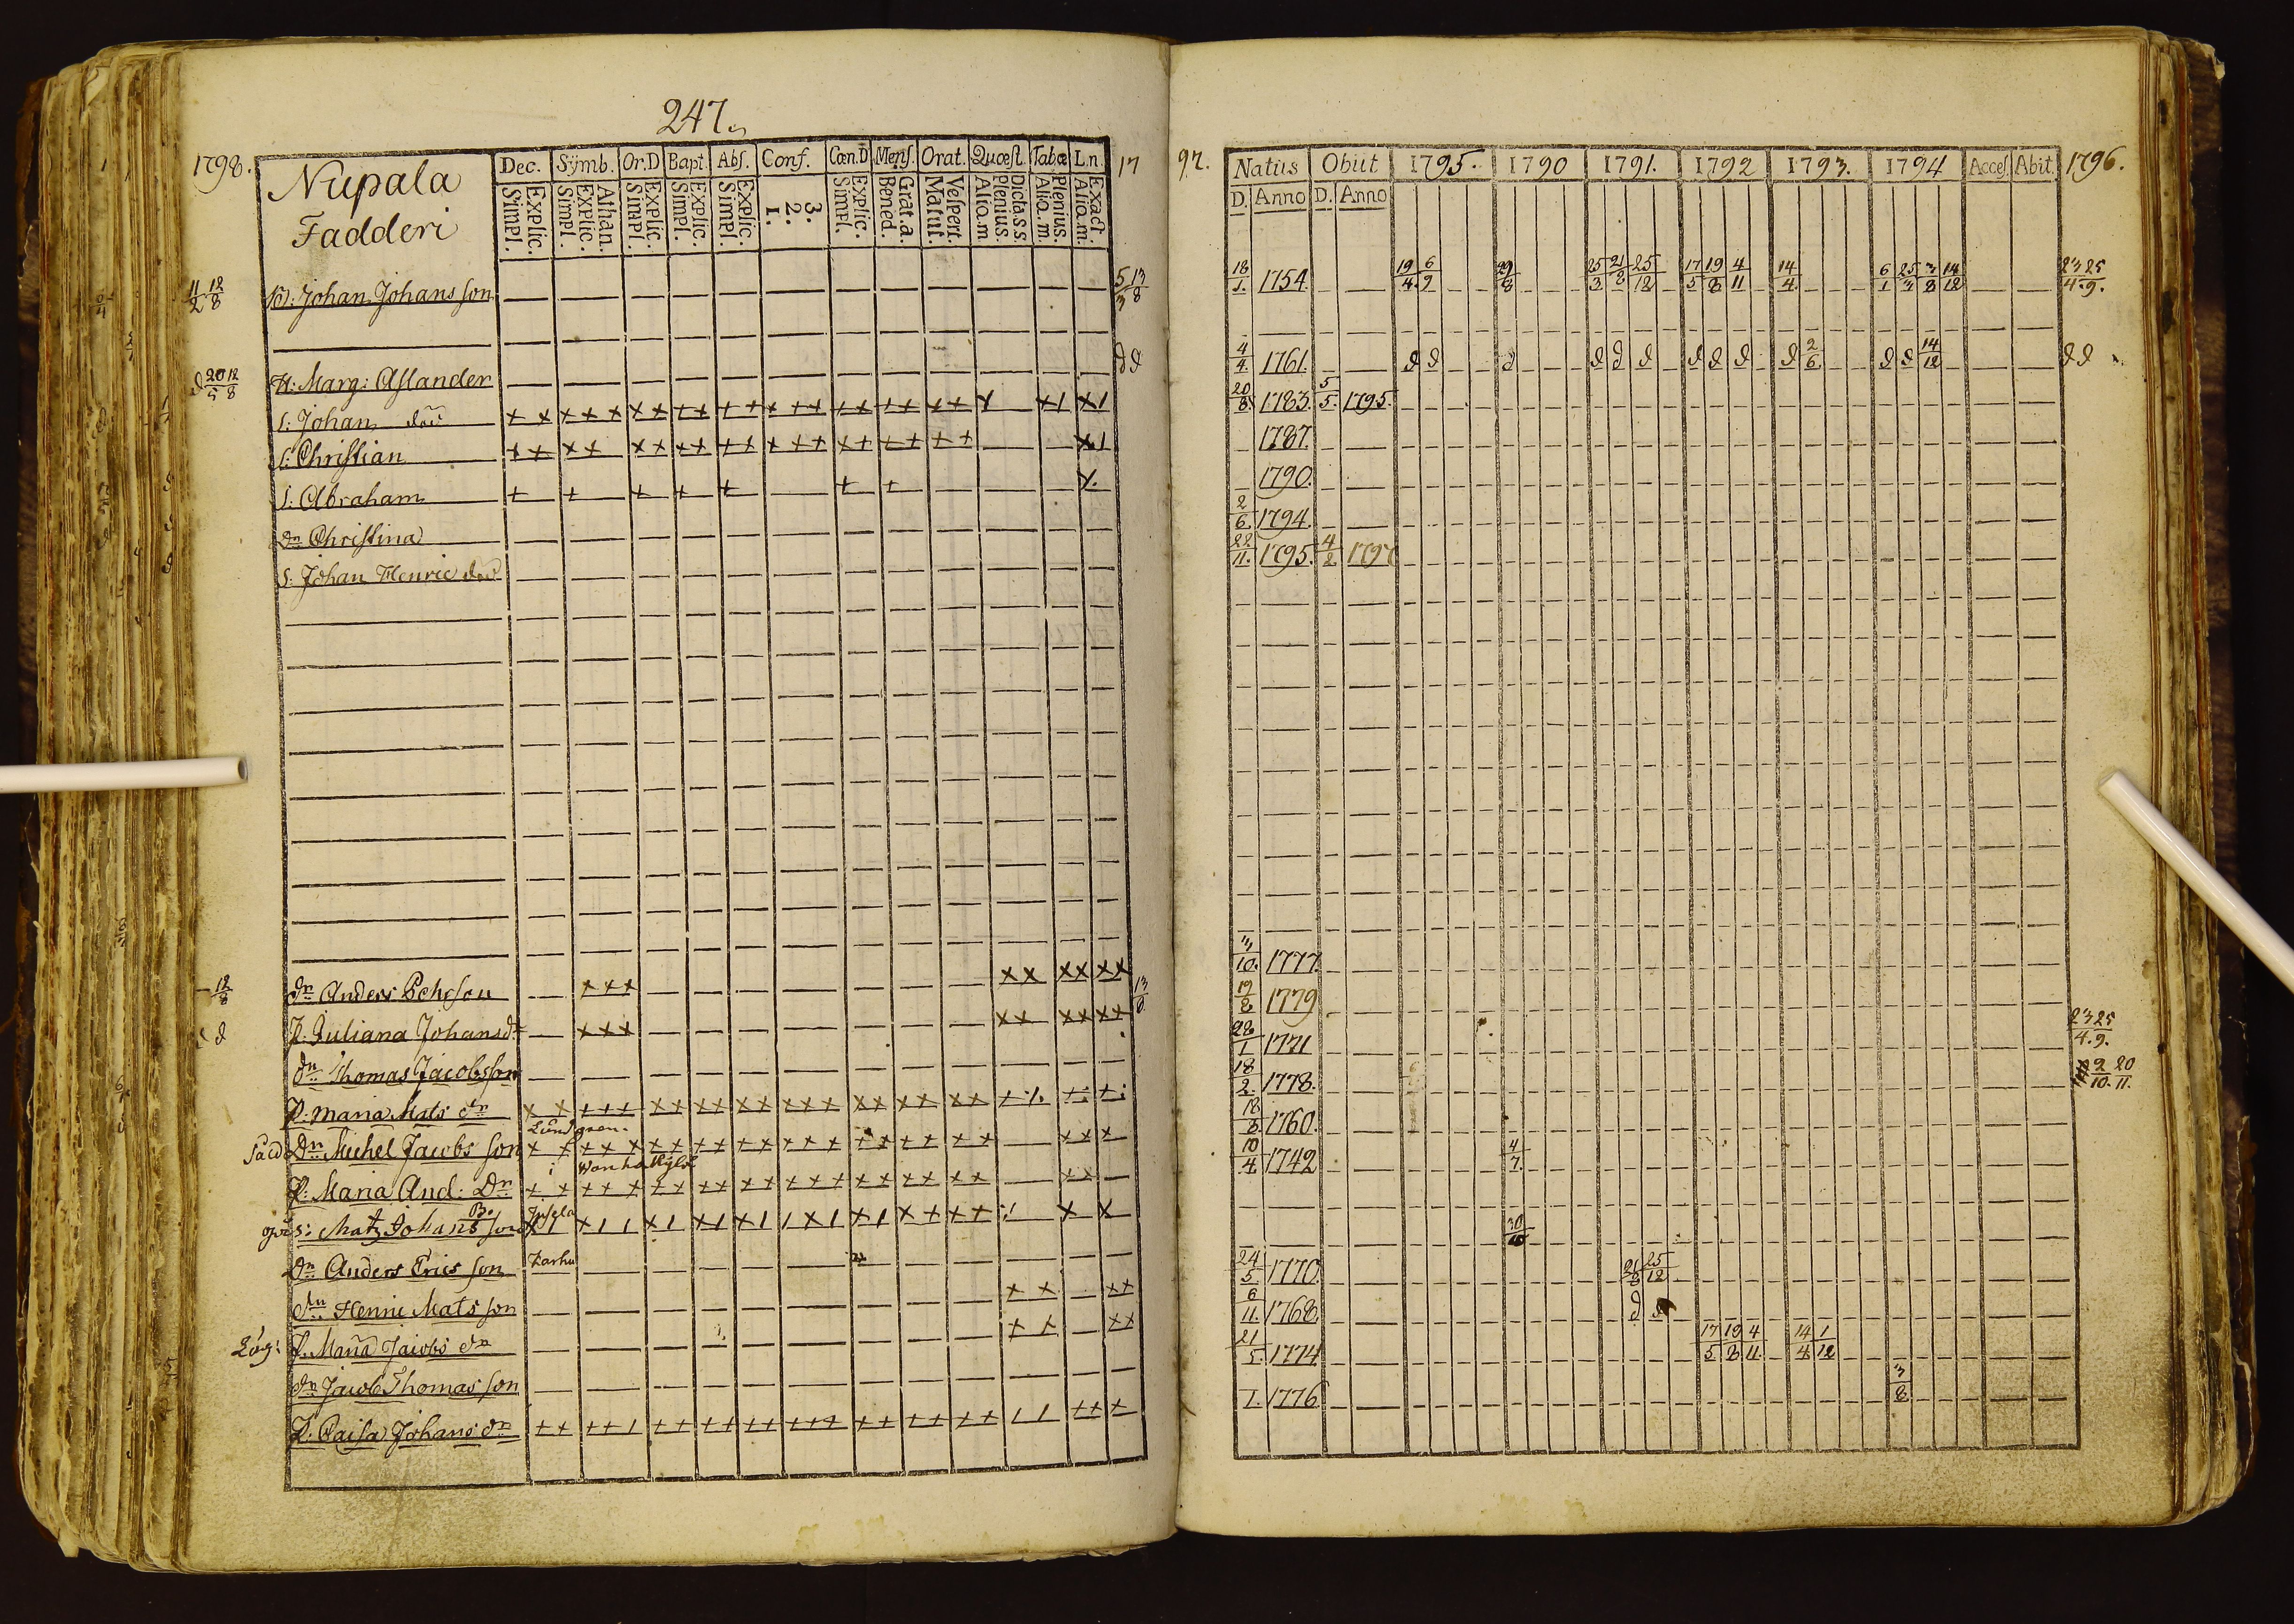 247.
1798.
Nupala
Fadderi
Dec. Symb. Or.D Bapt. Abs. Conf. Cœn.D Mens. Orat. Quæst. Tabœ L.n.
Explic. Simpl. Athan. Explic. Simpl. Explic. Simpl. Explic. Simpl. Explic. Simpl. 3. 2. 1. Explic. Simpl. Grat.a. Bened. Vespert. Matut. Dicta.s.s. Plenius. Aliq.m Plenius. Aliq.m. Exact. Aliq.m.
17
11/2 12/8 B: Johan Johansson 5/3 13/8
d 20/5 12/8 H: Marg: Aslander d d
S: Johan död
S: Christian
S: Abraham
Dr Christina
S: Johan Henric död
12/8 Dn Anders 13/8
d P. Juliana Johansdr
Dn Thomas Jacobsson
P. Maria Mats dr
Dn Michel Jacobs son Lundgren
P: Maria And: Dr
S: Matz Johans son
Dn Anders Erics son
Dn Henric Mats son
P. Maria Jacobs dr
Dn Jacob Thomas son
P. Caisa Johans dr
97.
Natus Obiit 1795. 1790 1791. 1792 1793. 1794 Acces. Abit. 1796.
D. Anno D. Anno
18/1. 1754. 19/4 6/9 29/8 25/3 21/8 25/12 17/5 19/8 4/11 14/4 6/1 25/3 3/8 14/12 23/4 25/9.
4/4. 1761. d d d d d d d d d d 2/6 d d 14/12 d d
20/8. 1783. 5/5. 1795.
1787.
1790.
2/6. 1794.
22/11. 1795. 4/2. 1797
3/10. 1777.
19/8 1779
28/1 1771 23/4 25/9.
18/2. 1778. 2/10. 20/11.
18/8 1760.
10/4. 1742 4/7.
30/10
24/5 1770. 21/8 25/12
6/11. 1768. d d
21/5. 1774. 17/5 19/8 4/11. 14/4 1/12
1. 1776. 3/8